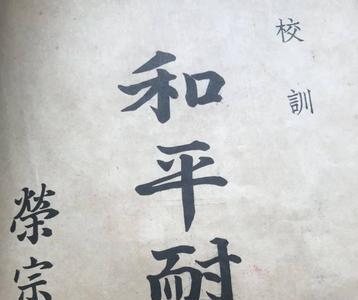 校訓
和平耐
榮宗